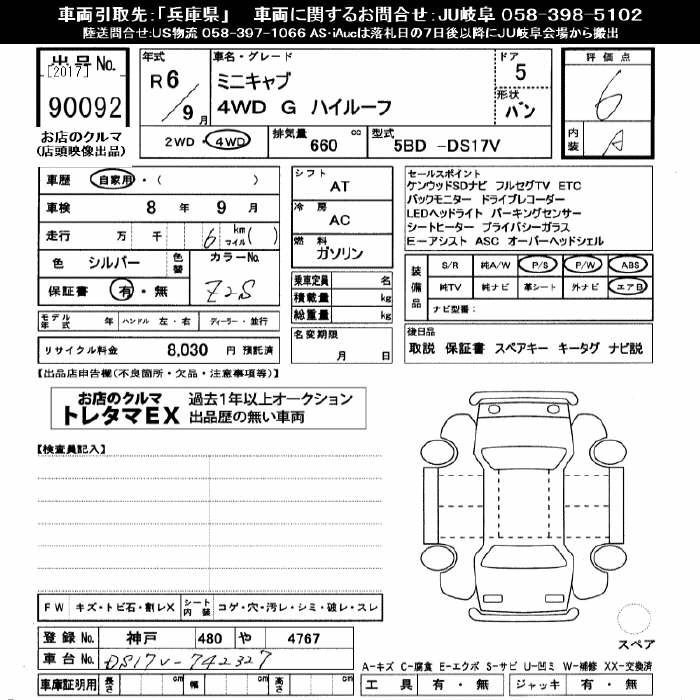 車両引取先:「兵庫県」 車両に関するお問合せ:JU岐阜 058-398-5102
陸送問合せ:US物流 058-397-1066 AS・iAucは落札日の7日後以降にJU岐阜会場から搬出
出品No.
[2017]
90092
お店のクルマ
(店頭映像出品)
年式
R6/9月
車名・グレード
ミニキャブ
4WD G ハイルーフ
ドア
5
形状
バン
2WD・4WD
排気量 660 cc
型式 5BD -DS17V
評価点
6
内装 A
車歴 自家用・( )
車検 8 年 9 月
走行 万 千 6 km マイル( )
色 シルバー 色替 カラーNo.
保証書 有・無 Z2S
モデル年式 年 ハンドル 左・右 ディーラー・並行
リサイクル料金 8,030 円 預託済
シフト
AT
冷房
AC
燃料
ガソリン
乗車定員 名
積載量 kg
総重量 kg
名変期限
月 日
セールスポイント
ケンウッドSDナビ フルセグTV ETC
バックモニター ドライブレコーダー
LEDヘッドライト パーキングセンサー
シートヒーター プライバシーガラス
E-アシスト ASC オーバーヘッドシェル
装備品
S/R 純A/W P/S P/W ABS
純TV 純ナビ 革シート 外ナビ エアB
ナビ型番:
後日品
取説 保証書 スペアキー キータグ ナビ説
【出品店申告欄(不良箇所・欠品・注意事項等)】
お店のクルマ
トレタマEX
過去1年以上オークション
出品歴の無い車両
【検査員記入】
FW キズ・トビ石・割レX シート内装 コゲ・穴・汚レ・シミ・破レ・スレ
登録No. 神戸 480 や 4767
車台No. DS17V-742327
車庫証明用 長さ cm 幅 cm 高さ cm
スペア
A-キズ C-腐食 E-エクボ S-サビ U-凹ミ W-補修 XX-交換済
工具 有・無 ジャッキ 有・無